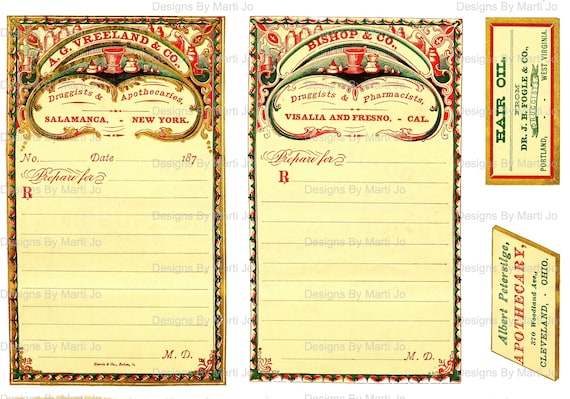 A. G. VREELAND & CO.,
Druggists & Apothecaries,
SALAMANCA, - NEW YORK.
No. Date 187
Prepare for
℞
M. D.
BISHOP & CO.,
Druggists & Pharmacists,
VISALIA AND FRESNO, - CAL.
Prepare for
℞
M. D.
HAIR OIL,
FROM
DR. J. B. FOGLE & CO.,
DRUGGISTS
PORTLAND, WEST VIRGINIA.
Albert Petersilge,
APOTHECARY,
370 Woodland Ave.,
CLEVELAND, OHIO.
Designs By Marti Jo